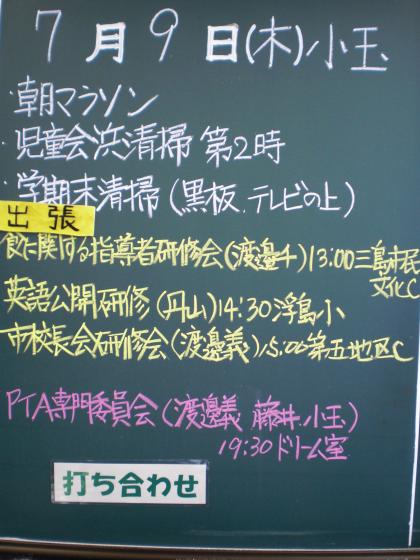 7月9日(木)小玉
・朝マラソン
・児童会浜清掃 第2時
・学期末清掃(黒板、テレビの上)
出張
食に関する指導者研修会(渡邉千)13:00三島市民文化C
英語公開研修(丹山)14:30浮島小
市校長会研修会(渡邉義)15:00第五地区C
PTA専門委員会(渡邉義 藤井 小玉)
19:30ドリーム室
打ち合わせ